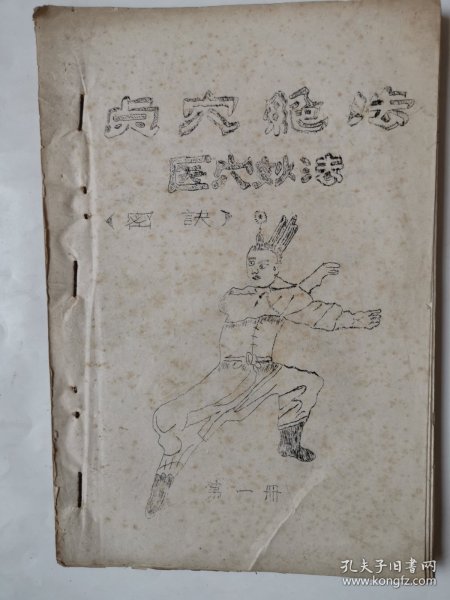 点穴绝法
医穴妙法
《密訣》
第一册
孔夫子旧书网
www.kongfz.com